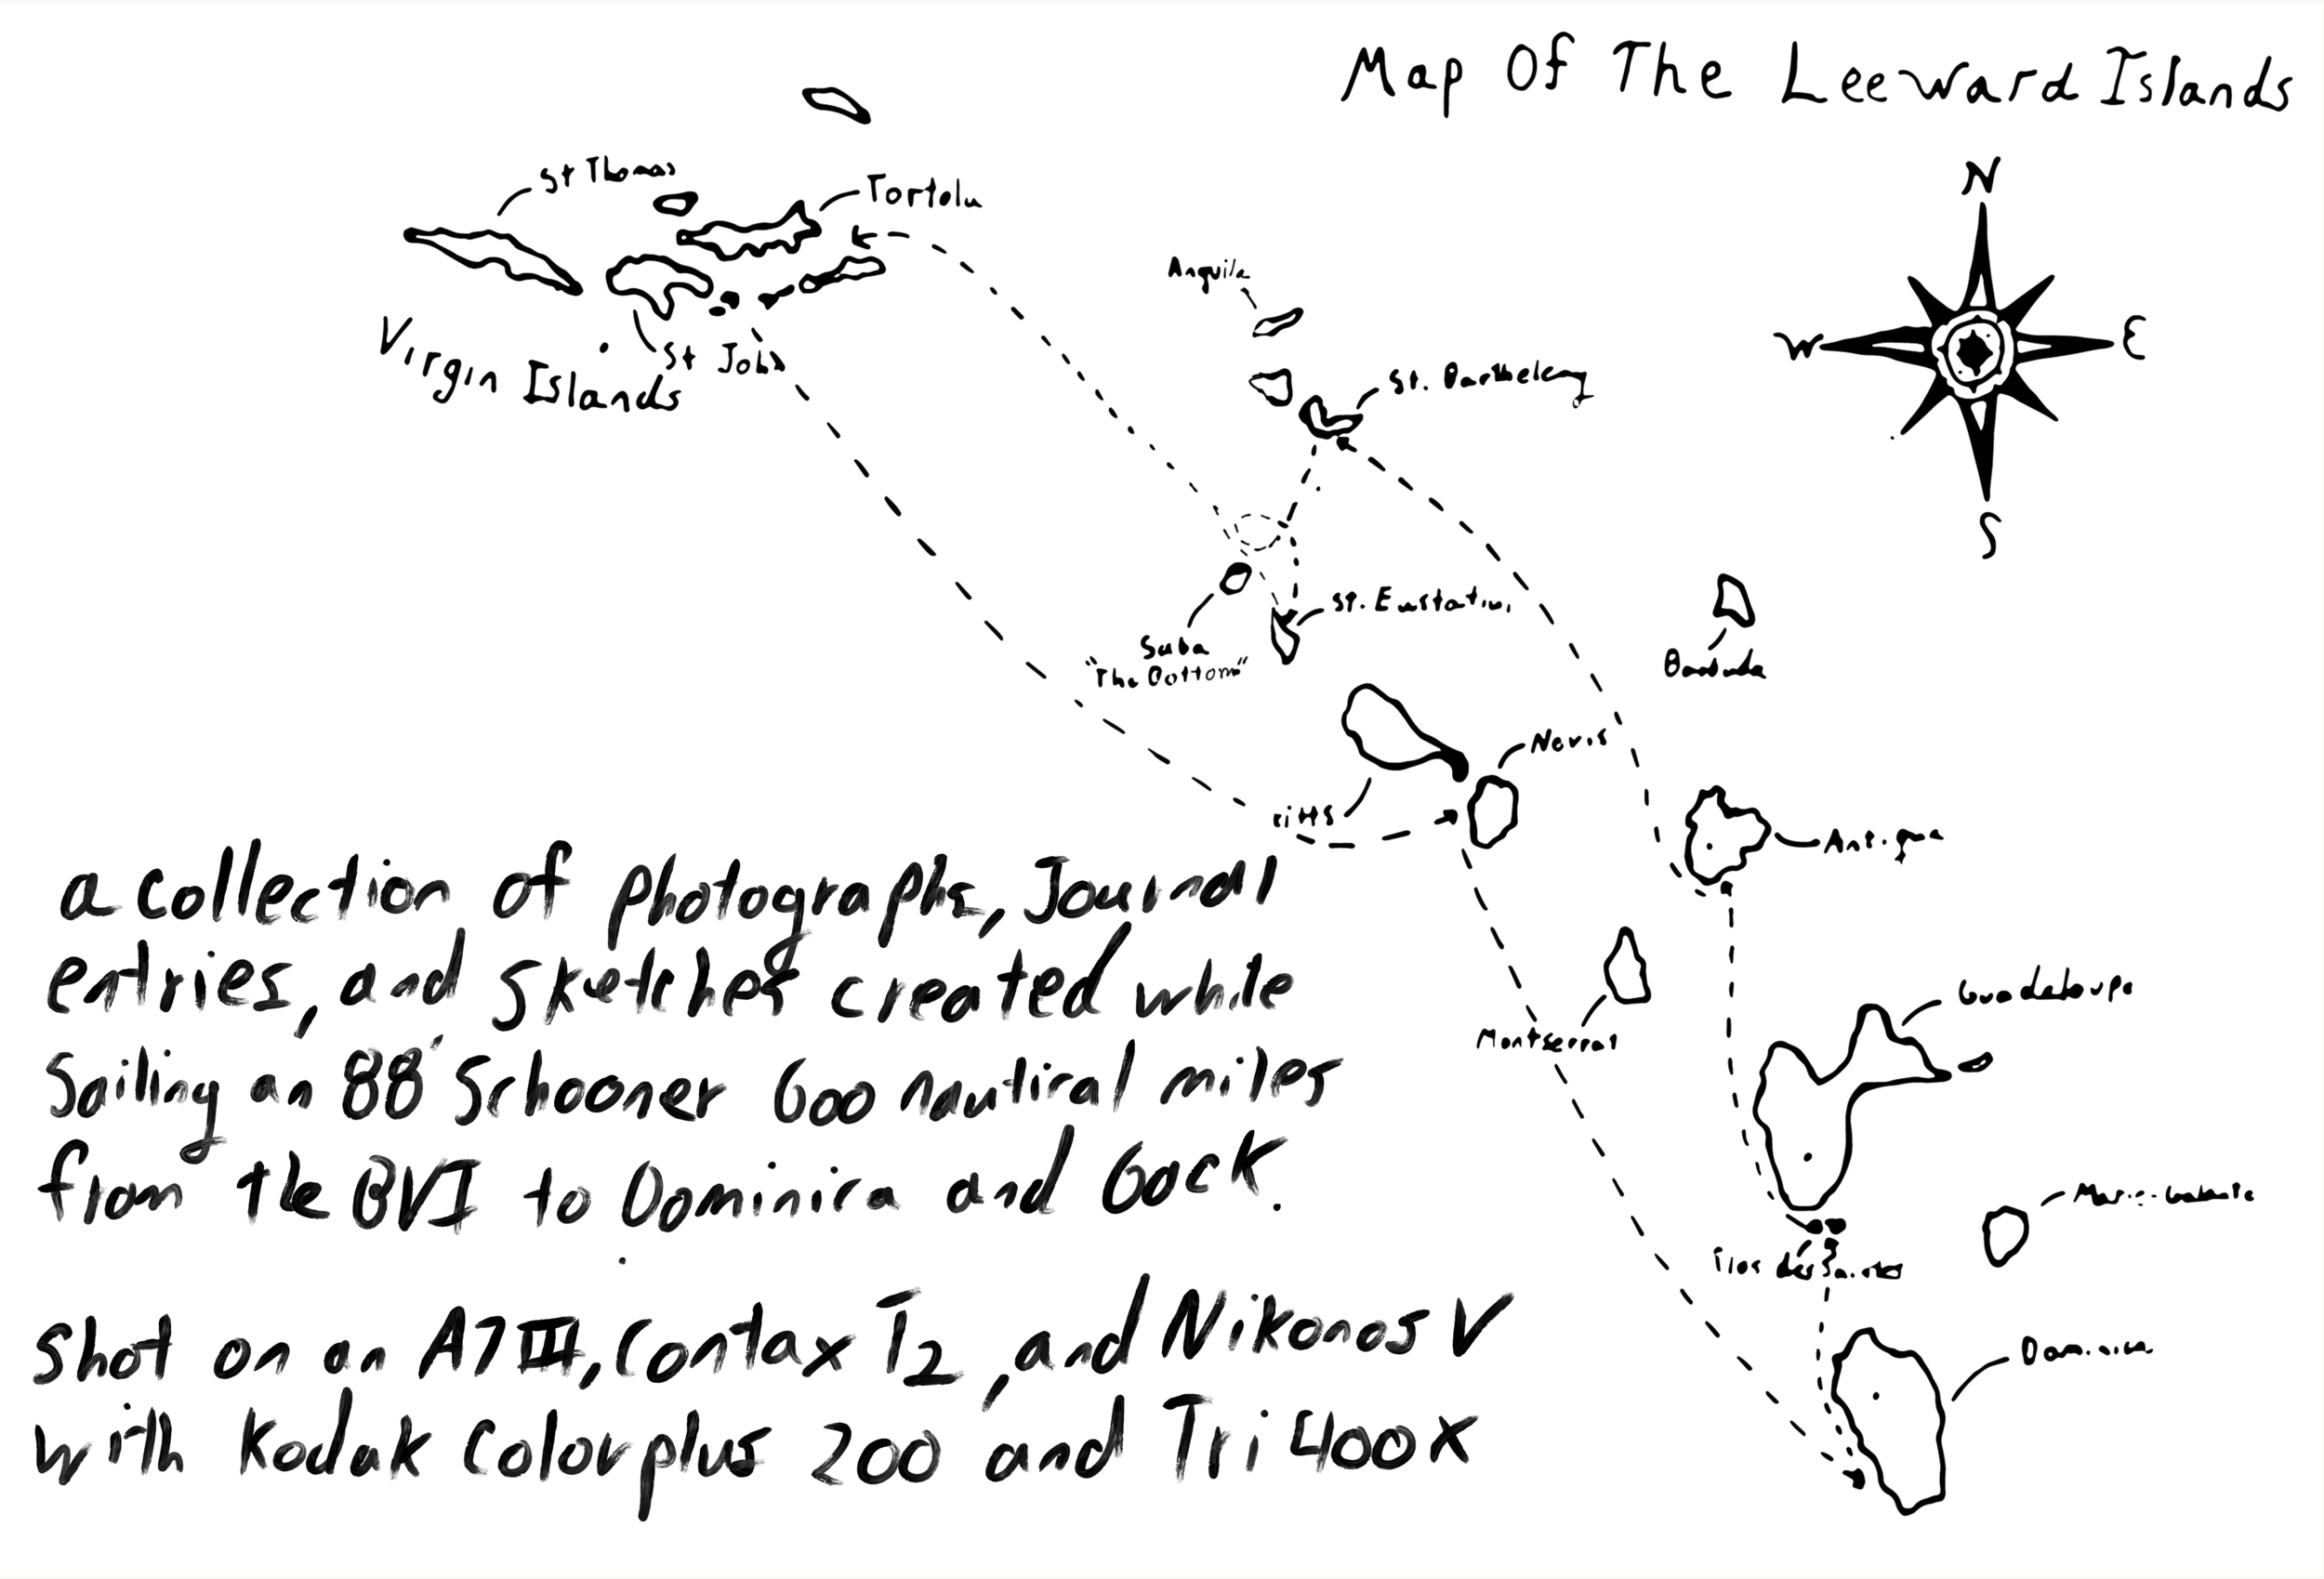 Map Of The Leeward Islands
N
St Thomas
Tortola
Anguila
W
E
St John
Virgin Islands
St. Barthelemy
S
St. Eustatius
Saba
"The Bottom"
Barbuda
Nevis
Kitts
Antigua
a collection of photographs, Journal
entries, and sketches created while
Sailing an 88' Schooner 600 nautical miles
from the BVI to Dominica and back.
Montserrat
Guadeloupe
Marie-Galante
Îles des Saintes
Shot on an A7III, Contax T2, and Nikonos V
with Kodak Colorplus 200 and Tri 400x
Dominica